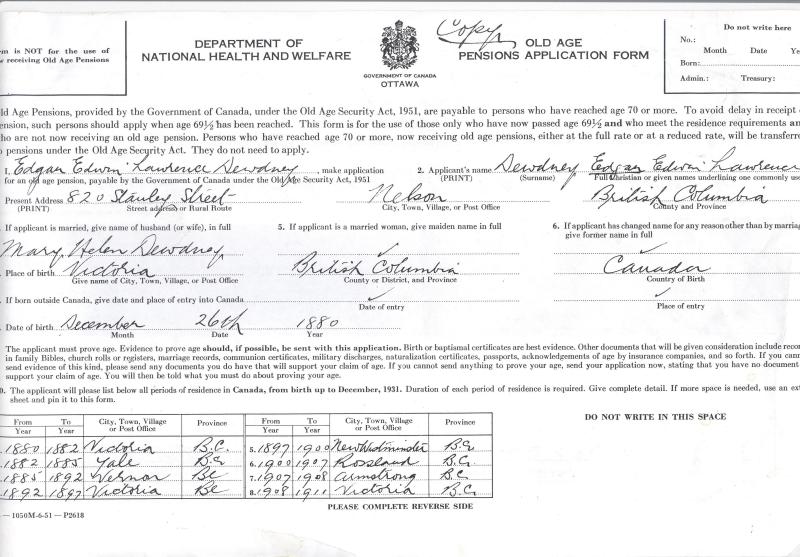 m is NOT for the use of
receiving Old Age Pensions
DEPARTMENT OF
NATIONAL HEALTH AND WELFARE
GOVERNMENT OF CANADA
OTTAWA
Copy
OLD AGE
PENSIONS APPLICATION FORM
Do not write here
No.:
Month Date Ye
Born:
Admin.: Treasury:
ld Age Pensions, provided by the Government of Canada, under the Old Age Security Act, 1951, are payable to persons who have reached age 70 or more. To avoid delay in receipt
ension, such persons should apply when age 69½ has been reached. This form is for the use of those only who have now passed age 69½ and who meet the residence requirements an
ho are not now receiving an old age pension. Persons who have reached age 70 or more, now receiving old age pensions, either at the full rate or at a reduced rate, will be transferre
pensions under the Old Age Security Act. They do not need to apply.
1. Edgar Edwin Lawrence Dewdney, make application
for an old age pension, payable by the Government of Canada under the Old Age Security Act, 1951
2. Applicant's name Dewdney Edgar Edwin Lawrence
(PRINT) (Surname) Full Christian or given names underlining one commonly use
Present Address 820 Stanley Street Nelson British Columbia
(PRINT) Street address or Rural Route City, Town, Village, or Post Office County and Province
If applicant is married, give name of husband (or wife), in full
5. If applicant is a married woman, give maiden name in full
6. If applicant has changed name for any reason other than by marria
give former name in full
Mary Helen Dewdney
Place of birth Victoria British Columbia Canada
Give name of City, Town, Village, or Post Office County or District, and Province Country of Birth
If born outside Canada, give date and place of entry into Canada
Date of entry Place of entry
Date of birth December 26th 1880
Month Date Year
The applicant must prove age. Evidence to prove age should, if possible, be sent with this application. Birth or baptismal certificates are best evidence. Other documents that will be given consideration include recor
in family Bibles, church rolls or registers, marriage records, communion certificates, military discharges, naturalization certificates, passports, acknowledgements of age by insurance companies, and so forth. If you canno
send evidence of this kind, please send any documents you do have that will support your claim of age. If you cannot send anything to prove your age, send your application now, stating that you have no document
support your claim of age. You will then be told what you must do about proving your age.
0. The applicant will please list below all periods of residence in Canada, from birth up to December, 1931. Duration of each period of residence is required. Give complete detail. If more space is needed, use an ext
sheet and pin it to this form.
DO NOT WRITE IN THIS SPACE
From Year To Year City, Town, Village or Post Office Province From Year To Year City, Town, Village or Post Office Province
1880 1882 Victoria B.C. 5. 1897 1900 New Westminster B.C.
1882 1885 Yale B.C. 6. 1900 1907 Rossland B.C.
1885 1892 Vernon BC 7. 1907 1908 Armstrong B.C.
1892 1897 Victoria BC 8. 1908 1911 Victoria B.C.
PLEASE COMPLETE REVERSE SIDE
— 1050M-6-51 — P2618